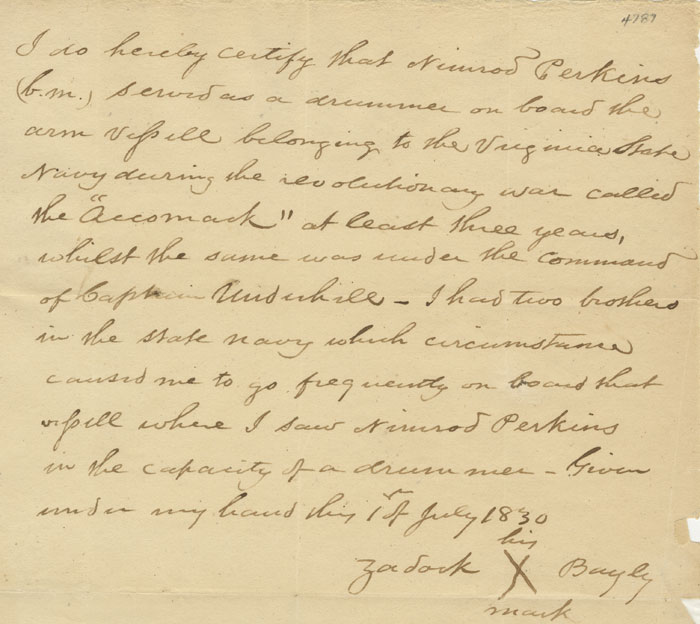 4787
I do hereby certify that Nimrod Perkins
(b.m.) served as a drummer on board the
arm vessell belonging to the Virginia State
Navy during the revolutionary war called
the "Accomack" at least three years,
whilst the same was under the command
of Captain Underhill – I had two brothers
in the state navy which circumstance
caused me to go frequently on board that
vessell where I saw Nimrod Perkins
in the capacity of a drummer – Given
under my hand this 1st of July 1830
his
Zadock X Bayly
mark